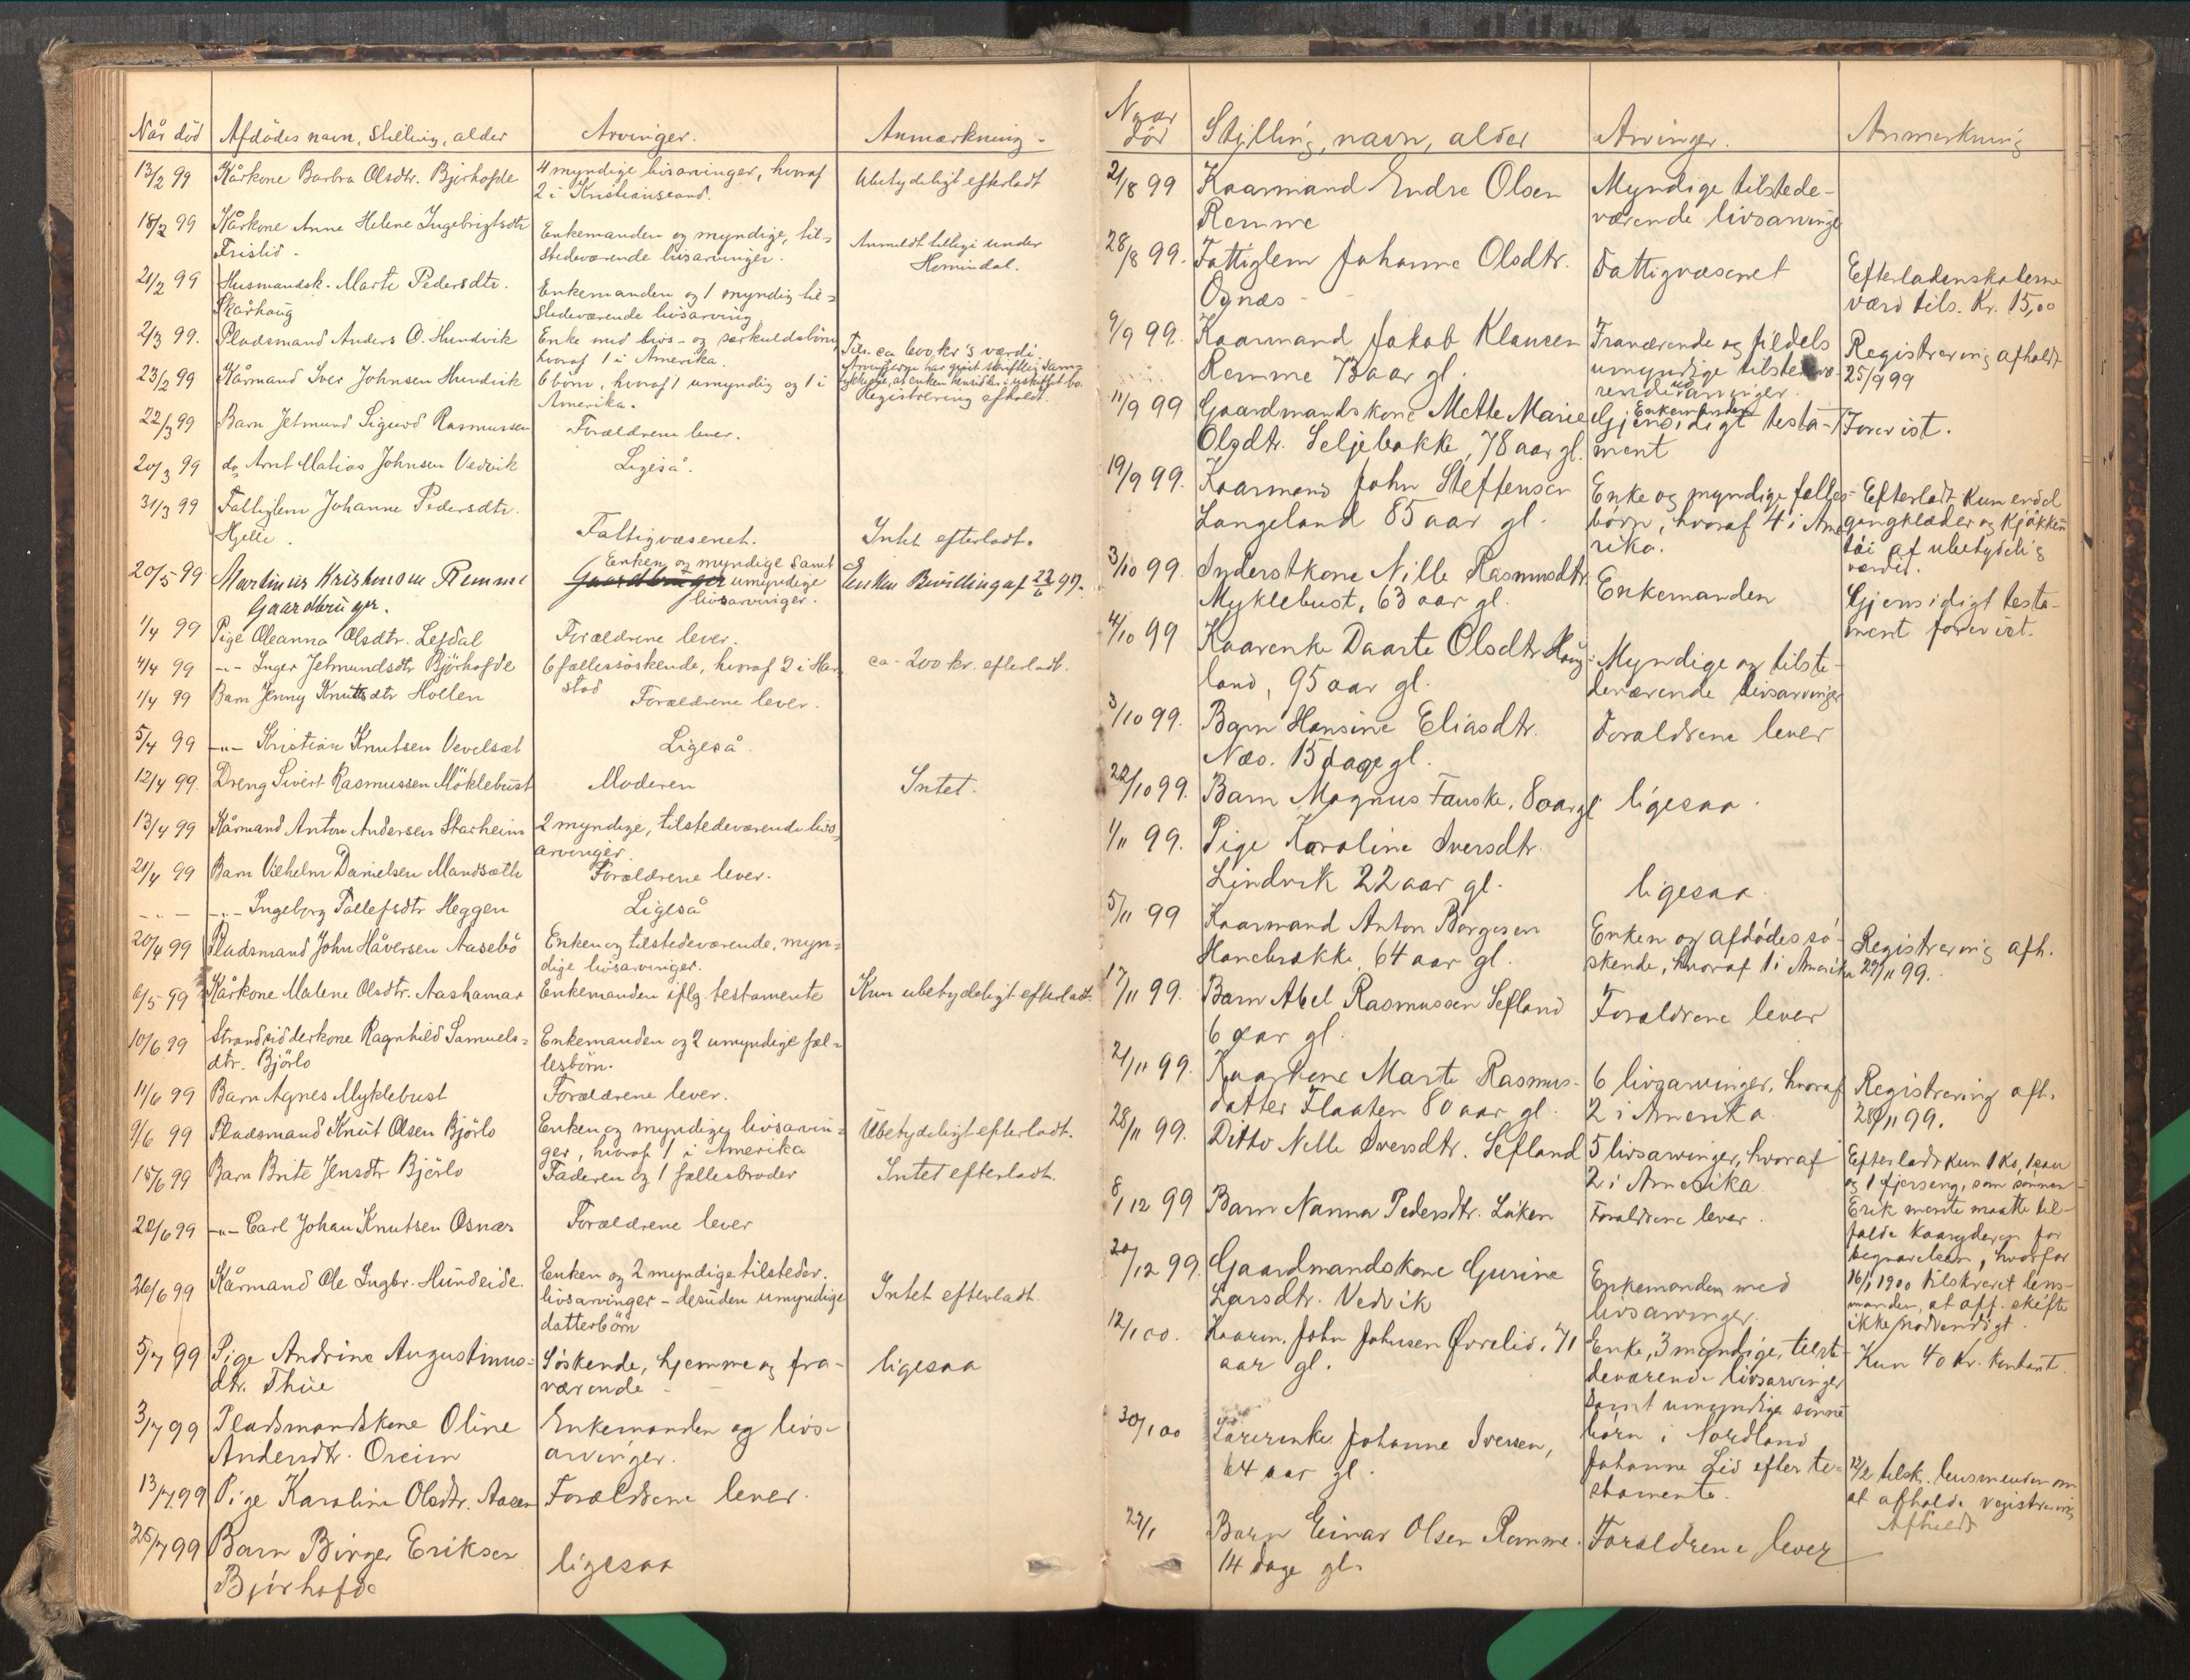 Når död Afdödes navn, stilling, alder Arvinger. Anmærkning -
13/2 99 Kårkone Barbra Olsdtr. Bjørhofde 4 myndige livsarvinger, hvoraf Ubetydeligt efterladt
2 i Kristianssand.
18/2 99 Kårkone Anne Helene Ingebrigtsdtr Enkemanden og myndige, til- Anmeldt tillige under
Fristid. stedeværende livsarvinger. Hornindal.
21/2 99 Husmandsk. Marte Pedersdtr. Enkemanden og 1 myndig til-
Skårhaug stedeværende livsarving
2/3 99. Pladsmand Anders O. Hundvik Enke med livs- og særkuldsbörn Tils. ca 600 kr's værdi.
hvoraf 1 i Amerika.
23/2 99 Kårmand Iver Johnsen Hundvik 6 börn, hvoraf 1 umyndig og 1 i
Amerika. Registrering afholdt.
22/3 99 Barn Jetmund Sigurd Rasmussen Forældrene lever.
20/3 99 do Arnt Matias Johnsen Vedvik Ligeså.
31/3 99 Fattiglem Johanne Pedersdtr.
Hjelle. Fattigvæsenet. Intet efterladt.
20/5 99 Martinus Kristensen Remme Enken og myndige samt Enken Bevilling af 22/6 99.
Gaardbruger. Gaardbruger umyndige
livsarvinger.
1/4 99 Pige Oleanna Olsdtr. Lefdal Forældrene lever.
4/4 99 -"- Inger Jetmundsdtr Bjørhofde 6 fællessöskende, hvoraf 2 i Har- ca. 200 kr. efterladt.
stad
1/4 99 Barn Jenny Knutsdtr Hollen Forældrene lever.
5/4 99 -"- Kristian Knutsen Vevelsæt Ligeså
12/4 99. Dreng Sivert Rasmussen Möklebust Moderen Intet.
13/4 99 Kårmand Anton Andersen Starheim 2 myndige, tilstedeværende livs-
arvinger.
21/4 99 Barn Vilhelm Danielsen Mandsæth Forældrene lever.
- - - -"- Ingeborg Tollefsdtr Heggen Ligeså
20/4 99 Pladsmand John Håversen Aasebö Enken og tilstedeværende, myn-
dige livsarvinger.
6/5 99 Kårkone Malene Olsdtr. Aashamar Enkemanden iflg. testamente Kun ubetydeligt efterladt.
10/6 99 Strandsidderkone Ragnhild Samuels- Enkemanden og 2 umyndige fæl-
dtr. Bjørlo lesbörn.
11/6 99 Barn Agnes Myklebust Forældrene lever.
9/6 99 Pladsmand Knut Olsen Bjørlo Enken og myndige livsarvin- Ubetydeligt efterladt.
ger, hvoraf 1 i Amerika
15/6 99 Barn Brite Jensdtr Bjørlo Faderen og 1 fællesbroder Intet efterladt.
22/6 99 -"- Carl Johan Knutsen Osnæs Forældrene lever
26/6 99 Kårmand Ole Ingbr. Hundeide. Enken og 2 myndige tilstedev. Intet efterladt.
livsarvinger - desuden umyndige
datterbörn
5/7 99 Pige Andrine Augustinus- Söskende, hjemme og fra- ligesaa
dtr. Thue værende -
3/7 99 Pladsmandskone Oline Enkemanden og livs-
Andersdtr. Oreim arvinger.
13/7 99 Pige Karoline Olsdtr. Aasen Forældrene lever.
25/7 99 Barn Birger Eriksen ligesaa
Bjørhofde
Naar
død Stilling, navn, alder Arvinger. Anmerkning
2/8 99 Kaarmand Endre Olsen Myndige tilstede-
Remme værende livsarvinger
28/8 99. Fattiglem Johanne Olsdtr. Fattigvæsenet Efterladenskaberne
Osnæs - værd tils. Kr. 15,00
9/9 99. Kaarmand Jakob Klausen Fraværende og tildels Registrering afholdt
Remme 73 aar gl. umyndige tilstedevæ- 25/9 99
rende arvinger.
11/9 99 Gaardmandskone Mette Marie Enkemanden
Olsdtr. Seljebakke, 78 aar gl. Gjensidigt testa- Forevist.
ment
19/9 99. Kaarmand John Steffensen Enke og myndige fælles- Efterladt kun endel
Langeland 85 aar gl. börn, hvoraf 4 i Ame- gangklæder og kjøkken-
rika. töi af ubetydelig
værdi.
3/10 99. Inderstkone Nille Rasmusdtr. Enkemanden Gjensidigt testa-
Myklebust, 63 aar gl. ment forevist.
4/10 99 Kaarenke Daarte Olsdtr Haug- Myndige og tilste-
land, 95 aar gl. deværende livsarvinger
3/10 99. Barn Hansine Eliasdtr. Forældrene lever
Næs. 15 dage gl.
22/10 99. Barn Magnus Fauske, 8 aar gl ligesaa.
1/11 99. Pige Karoline Iversdtr.
Lindvik 22 aar gl. ligesaa.
5/11 99 Kaarmand Anton Borgesen Enken og afdødes sö- Registrering afh.
Hanebrække, 64 aar gl. skende, hvoraf 1 i Amerika 27/11 99.
17/11 99. Barn Abel Rasmussen Sefland Forældrene lever
6 aar gl.
21/11 99. Kaarkone Marte Rasmus- 6 livsarvinger, hvoraf Registrering afh.
datter Flaaten 80 aar gl. 2 i Amerika. 28/11 99.
28/11 99. Ditto Nille Iversdtr. Sefland 5 livsarvinger, hvoraf Efterladt kun 1 ko, 1 sau
2 i Amerika og 1 fjerseng, som sønnen
8/12 99 Barn Nanna Pedersdtr. Løken Forældrene lever. Erik mente maatte til-
falde kaaryderen for
20/12 99. Gaardmandskone Gurine Enkemanden med begravelsen, hvorfor
Larsdtr. Vedvik livsarvinger. 16/1 1900 tilskrevet lens-
manden, at off. skifte
ikke nødvendigt.
12/1 00. Kaarm. John Johnsen Øvrelid, 71 Enke, 3 myndige, tilste- Kun 40 kr. kontant.
aar gl. deværende livsarvinger
samt umyndige sønne-
börn i Nordland
30/1 00 Lærerenke Johanne Iversen, Johanne Lid efter te- 12/2 tilsk. lensmanden om
64 aar gl. stamente. at afholde registrering
Afholdt
27/1 Barn Einar Olsen Remme. Forældrene lever
14 dage gl.